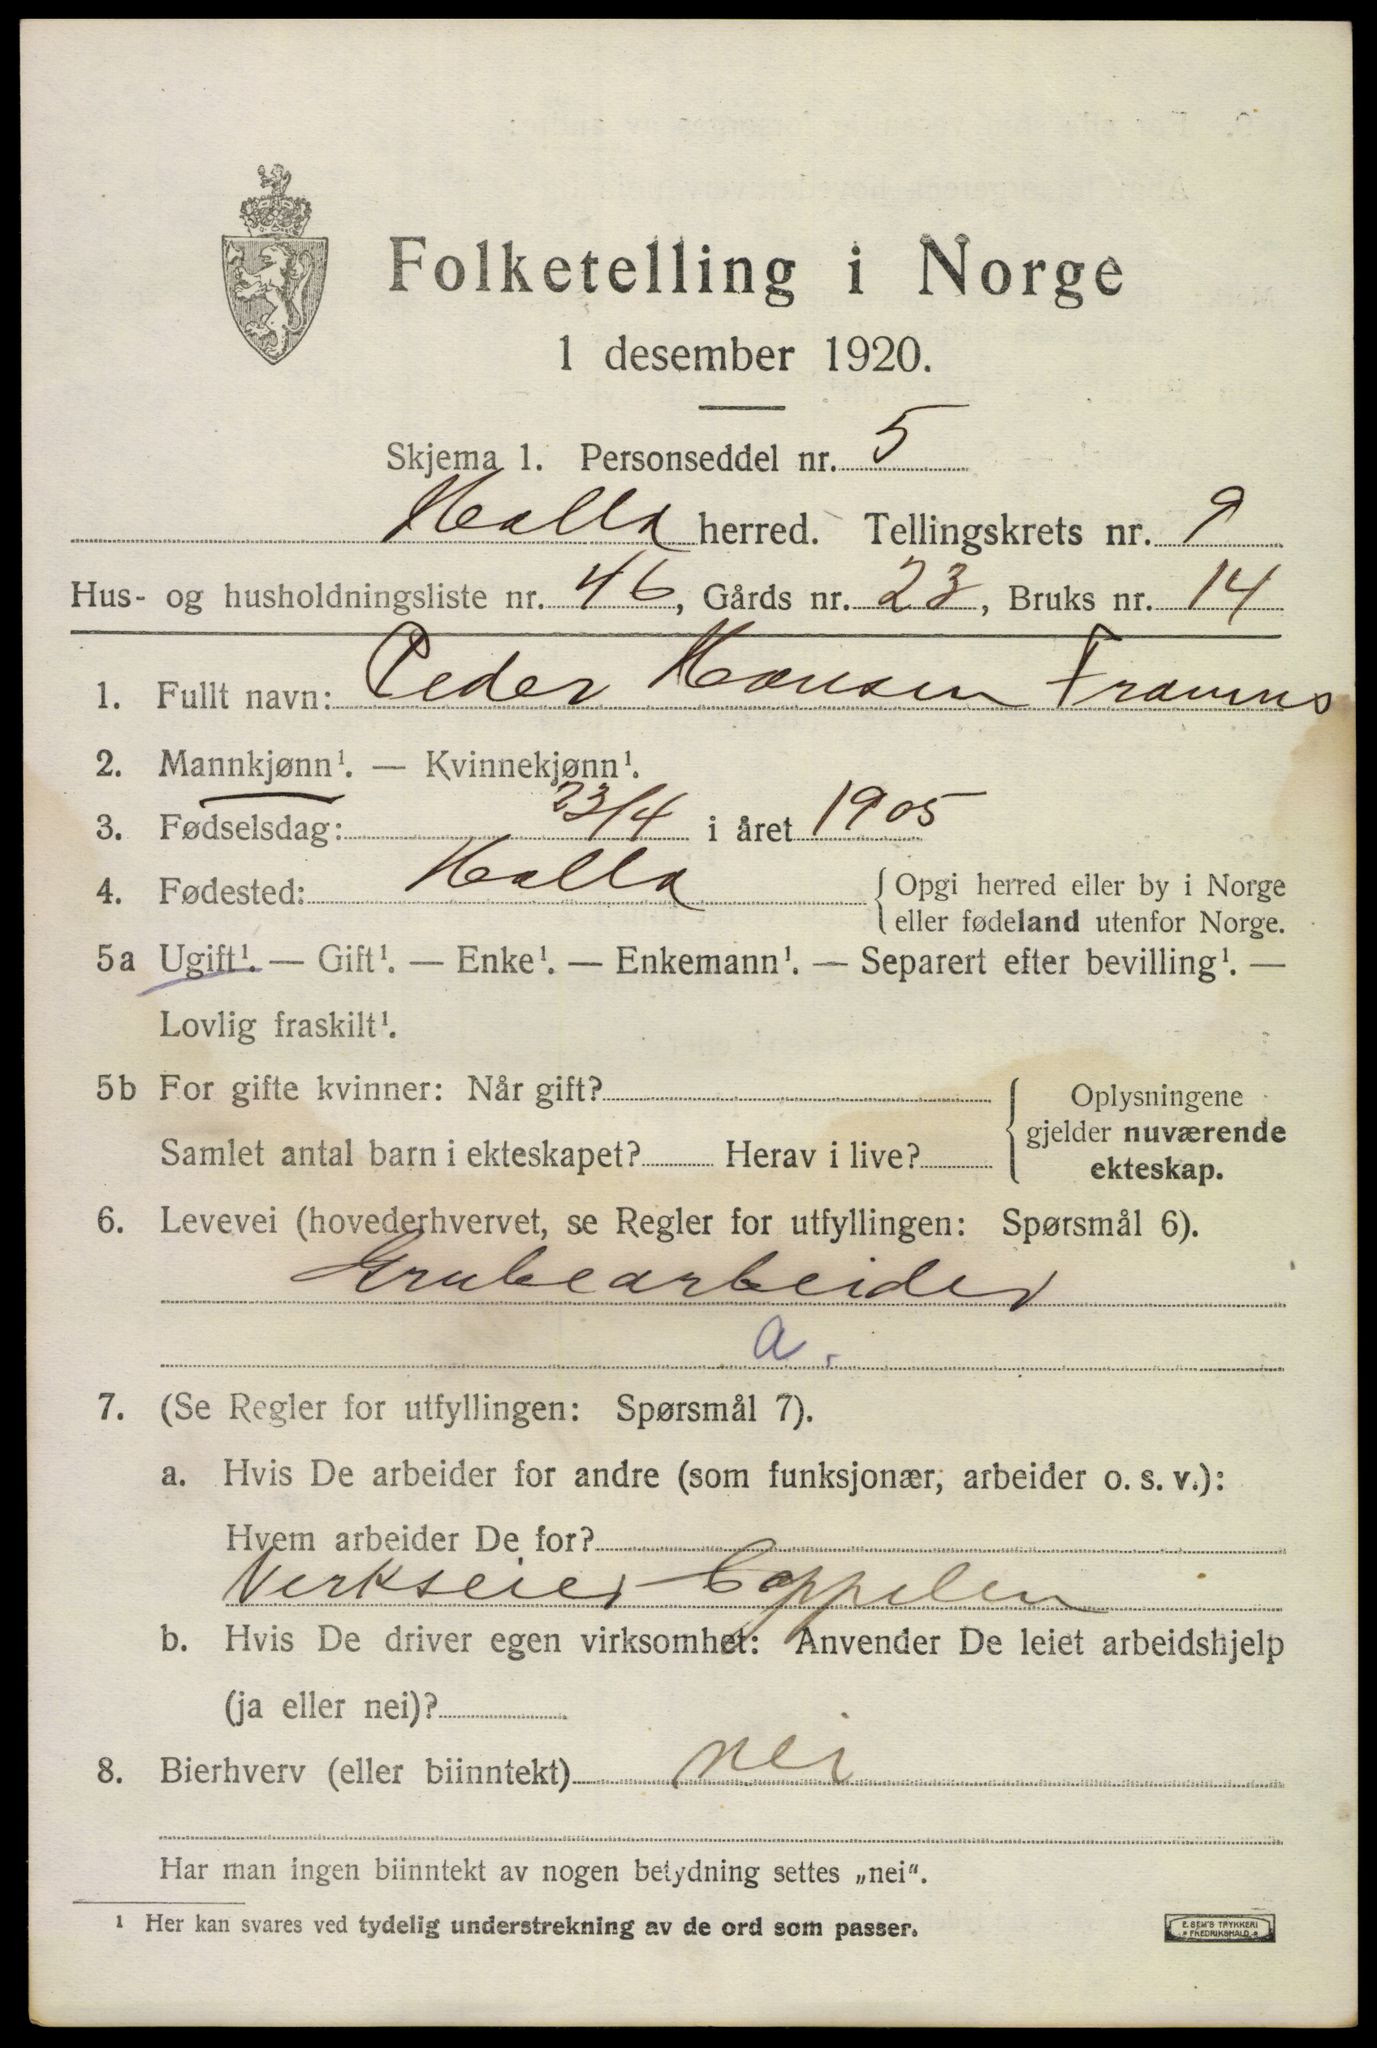 Folketelling i Norge
1 desember 1920.
Skjema 1. Personseddel nr. 5
Holla herred. Tellingskrets nr. 9
Hus- og husholdningsliste nr. 46, Gårds nr. 23, Bruks nr. 14
1. Fullt navn: Peder Hansen
2. Mannkjønn¹. — Kvinnekjønn¹.
3. Fødselsdag: 23/4 i året 1905
4. Fødested: Holla {Opgi herred eller by i Norge
eller fødeland utenfor Norge.
5a Ugift¹. — Gift¹. — Enke¹. — Enkemann¹. — Separert efter bevilling¹. —
Lovlig fraskilt¹.
5b For gifte kvinner: Når gift? { Oplysningene
gjelder nuværende
Samlet antal barn i ekteskapet? Herav i live? ekteskap.
6. Levevei (hovederhvervet, se Regler for utfyllingen: Spørsmål 6).
Grubearbeider
a.
7. (Se Regler for utfyllingen: Spørsmål 7).
a. Hvis De arbeider for andre (som funksjonær, arbeider o. s. v.):
Hvem arbeider De for?
Verkseier Cappelen
b. Hvis De driver egen virksomhet: Anvender De leiet arbeidshjelp
(ja eller nei)?
8. Bierhverv (eller biinntekt) nei
Har man ingen biinntekt av nogen betydning settes „nei".
¹ Her kan svares ved tydelig understrekning av de ord som passer.
E. SEM'S TRYKKERI
FREDRIKSHALD